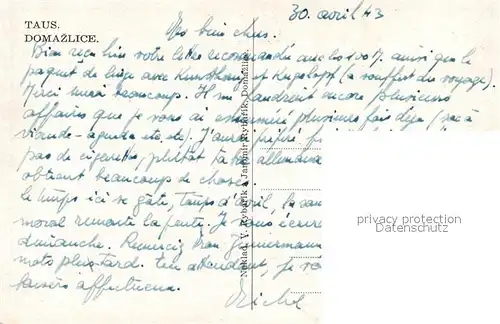 TAUS.
DOMAŽLICE.
30. avril 43
Mes bien chers.
Bien reçu hier votre lettre recommandée avec les 100 M. ainsi que le
paquet de linge avec Kunsthonig et (a souffert du voyage).
Merci mersi beaucoup. Il me faudrait encore plusieurs
affaires que je vous ai énumérées plusieurs fois déjà (sac à
viande - agenda etc. etc). J'aurai préféré
pas de cigarettes, plutôt tabac allemand
obtient beaucoup de choses.
le temps ici se gâte, temps d'avril, la
moral remonte la pente. Je vous écrirai
dimanche. Remerciez Mme Zimmermann
mots plus tard. En attendant, je vous
baisers affectueux.
Michel
Náklad V. Rybařík a Jaromír Rybařík, Domažlice.
privacy protection
Datenschutz